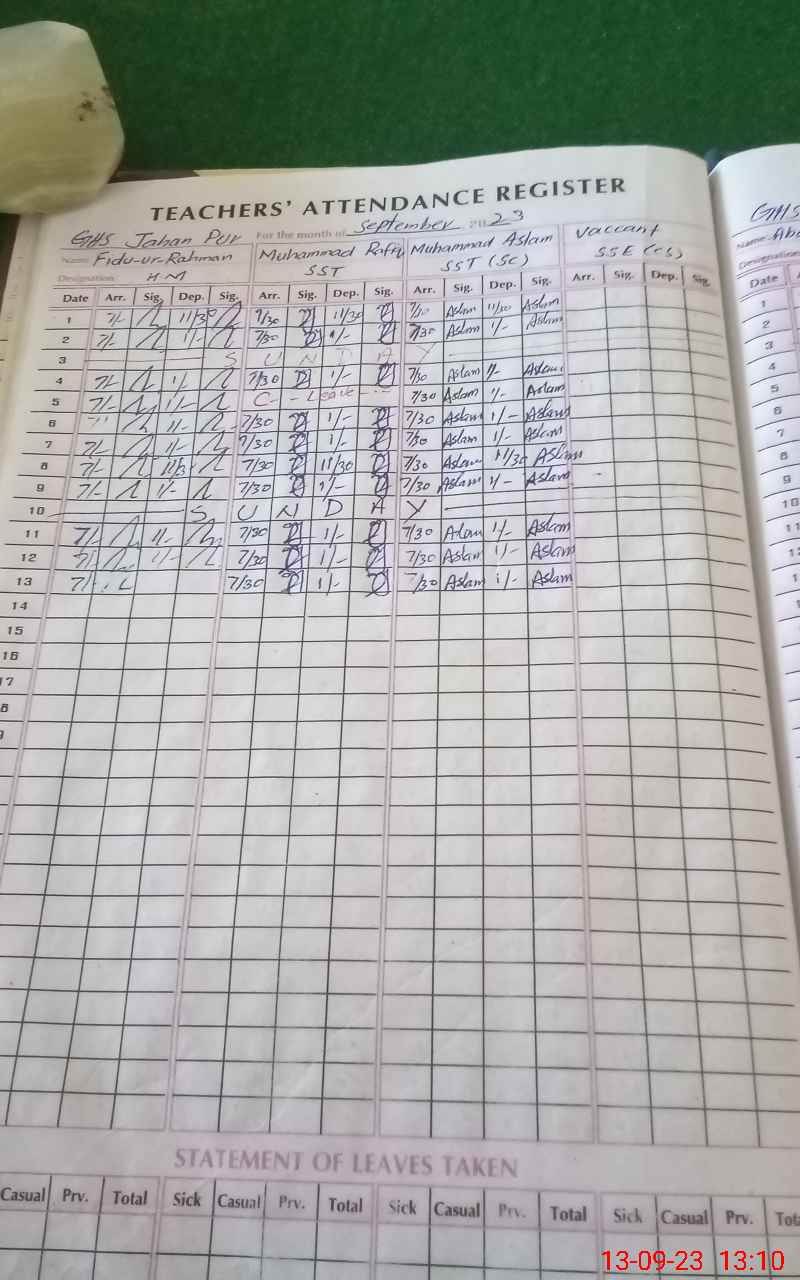 TEACHERS' ATTENDANCE REGISTER
GHS Jahan Pur For the month of September 2023
Name Fidu-ur-Rahman Muhammad Rafiq Muhammad Aslam Vaccant
Designation H-M SST SST (SC) SSE (CS)
Date Arr. Sig. Dep. Sig. Arr. Sig. Dep. Sig. Arr. Sig. Dep. Sig. Arr. Sig. Dep. Sig.
1 7/- 11/30 7/30 11/30 7/30 Aslam 11/30 Aslam
2 7/- 1/- 7/30 1/- 7/30 Aslam 1/- Aslam
3 S U N D A Y
4 7/- 1/- 7/30 1/- 7/30 Aslam 1/- Aslam
5 7/- 1/- C - Leave - 7/30 Aslam 1/- Aslam
6 1/- 7/30 1/- 7/30 Aslam 1/- Aslam
7 7/- 1/- 7/30 1/- 7/30 Aslam 1/- Aslam
8 7/- 11/3 7/30 11/30 7/30 Aslam 11/30 Aslam
9 7/- 1/- 7/30 1/- 7/30 Aslam 1/- Aslam
10 S U N D A Y
11 7/- 1/- 7/30 1/- 7/30 Aslam 1/- Aslam
12 7/- 1/- 7/30 1/- 7/30 Aslam 1/- Aslam
13 7/- 7/30 1/- 7/30 Aslam 1/- Aslam
14
15
16
17
8
9
GHS
Name Ab
Designation
Date
1
2
3
4
5
6
7
8
9
10
11
1
1
STATEMENT OF LEAVES TAKEN
Casual Prv. Total Sick Casual Prv. Total Sick Casual Prv. Total Sick Casual Prv. Tot
13-09-23 13:10